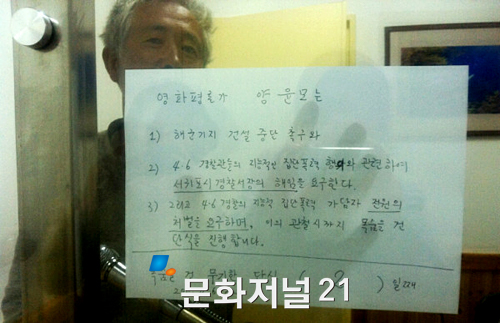 영화평론가 양윤모는
1) 해군기지 건설 중단 촉구와
2) 4·6 경찰관들의 집단폭력 관련하여
서귀포시 경찰서장의 해임을 요구한다.
3) 그리고 4·6 경찰의 집단폭력 가담자 전원의
처벌을 요구하며, 이의 관철시까지 목숨을 건
단식을 진행합니다.
건 단식 ( ? ) 일째
문화저널21